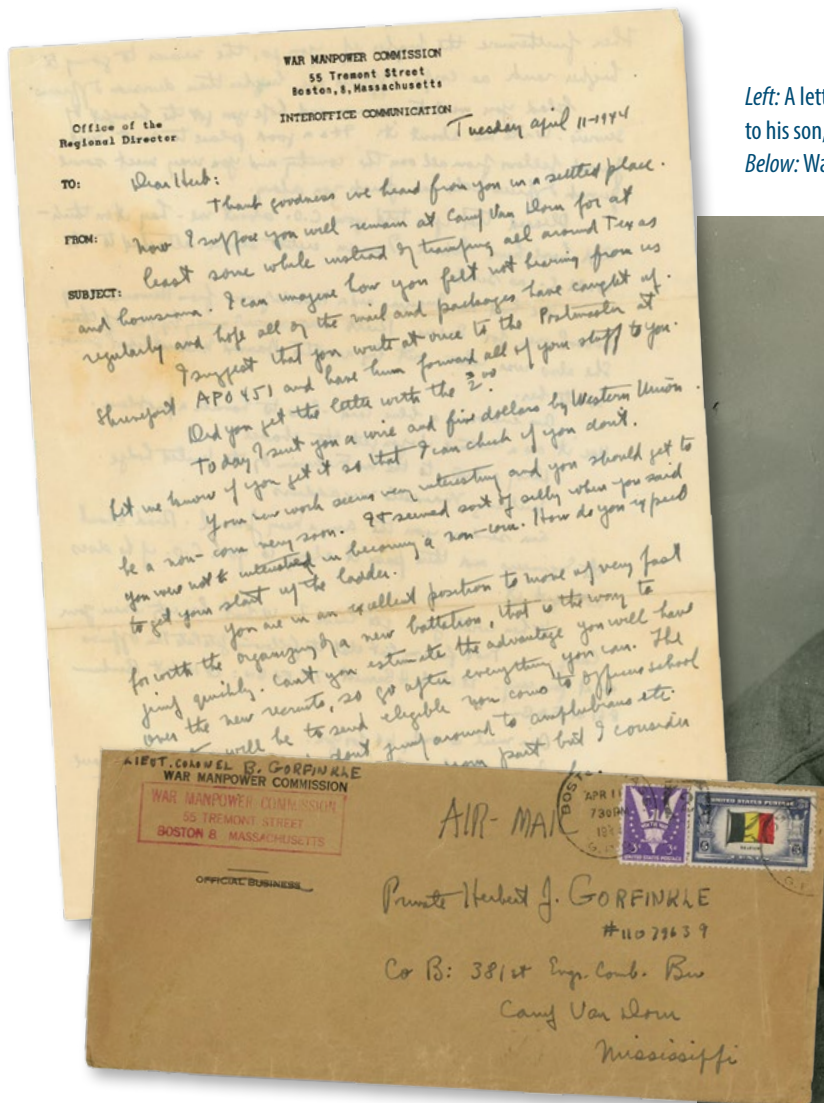 WAR MANPOWER COMMISSION
55 Tremont Street
Boston, 8, Massachusetts
INTEROFFICE COMMUNICATION
Office of the
Regional Director
Tuesday April 11-1944
TO:
Dear Herb:
Thank goodness we heard from you in a settled place.
FROM:
Now I suppose you will remain at Camp Van Dorn for at
least some while instead of tramping all around Texas
SUBJECT:
and Louisiana. I can imagine how you felt not hearing from us
regularly and hope all of the mail and packages have caught up.
I suggest that you write at once to the Postmaster at
Shreveport APO 451 and have him forward all of your stuff to you.
Did you get the letter with the 2.00
Today I sent you a wire and five dollars by Western Union.
Let me know if you get it so that I can check if you don't.
Your new work seems very interesting and you should get to
be a non-com very soon. It seemed sort of silly when you said
you were not interested in becoming a non-com. How do you expect
to get your start up the ladder.
You are in an excellent position to move up very fast
for with the organizing of a new battalion, that is the way to
jump quickly. Can't you estimate the advantage you will have
over the new recruits, so go after everything you can. The
will be to send eligible non coms to officers school
don't jump around to amphibians etc.
your part but I consider
LIEUT. COLONEL B. GORFINKLE
WAR MANPOWER COMMISSION
WAR MANPOWER COMMISSION
55 TREMONT STREET
BOSTON 8, MASSACHUSETTS
OFFICIAL BUSINESS
AIR-MAIL
BOSTON
APR 11
730PM
UNITED STATES POSTAGE
UNITED STATES POSTAGE
Private Herbert J. GORFINKLE
#11079639
Co B: 381st Engr. Comb. Bn
Camp Van Dorn
Mississippi
Left: A lett
to his son,
Below: Wa